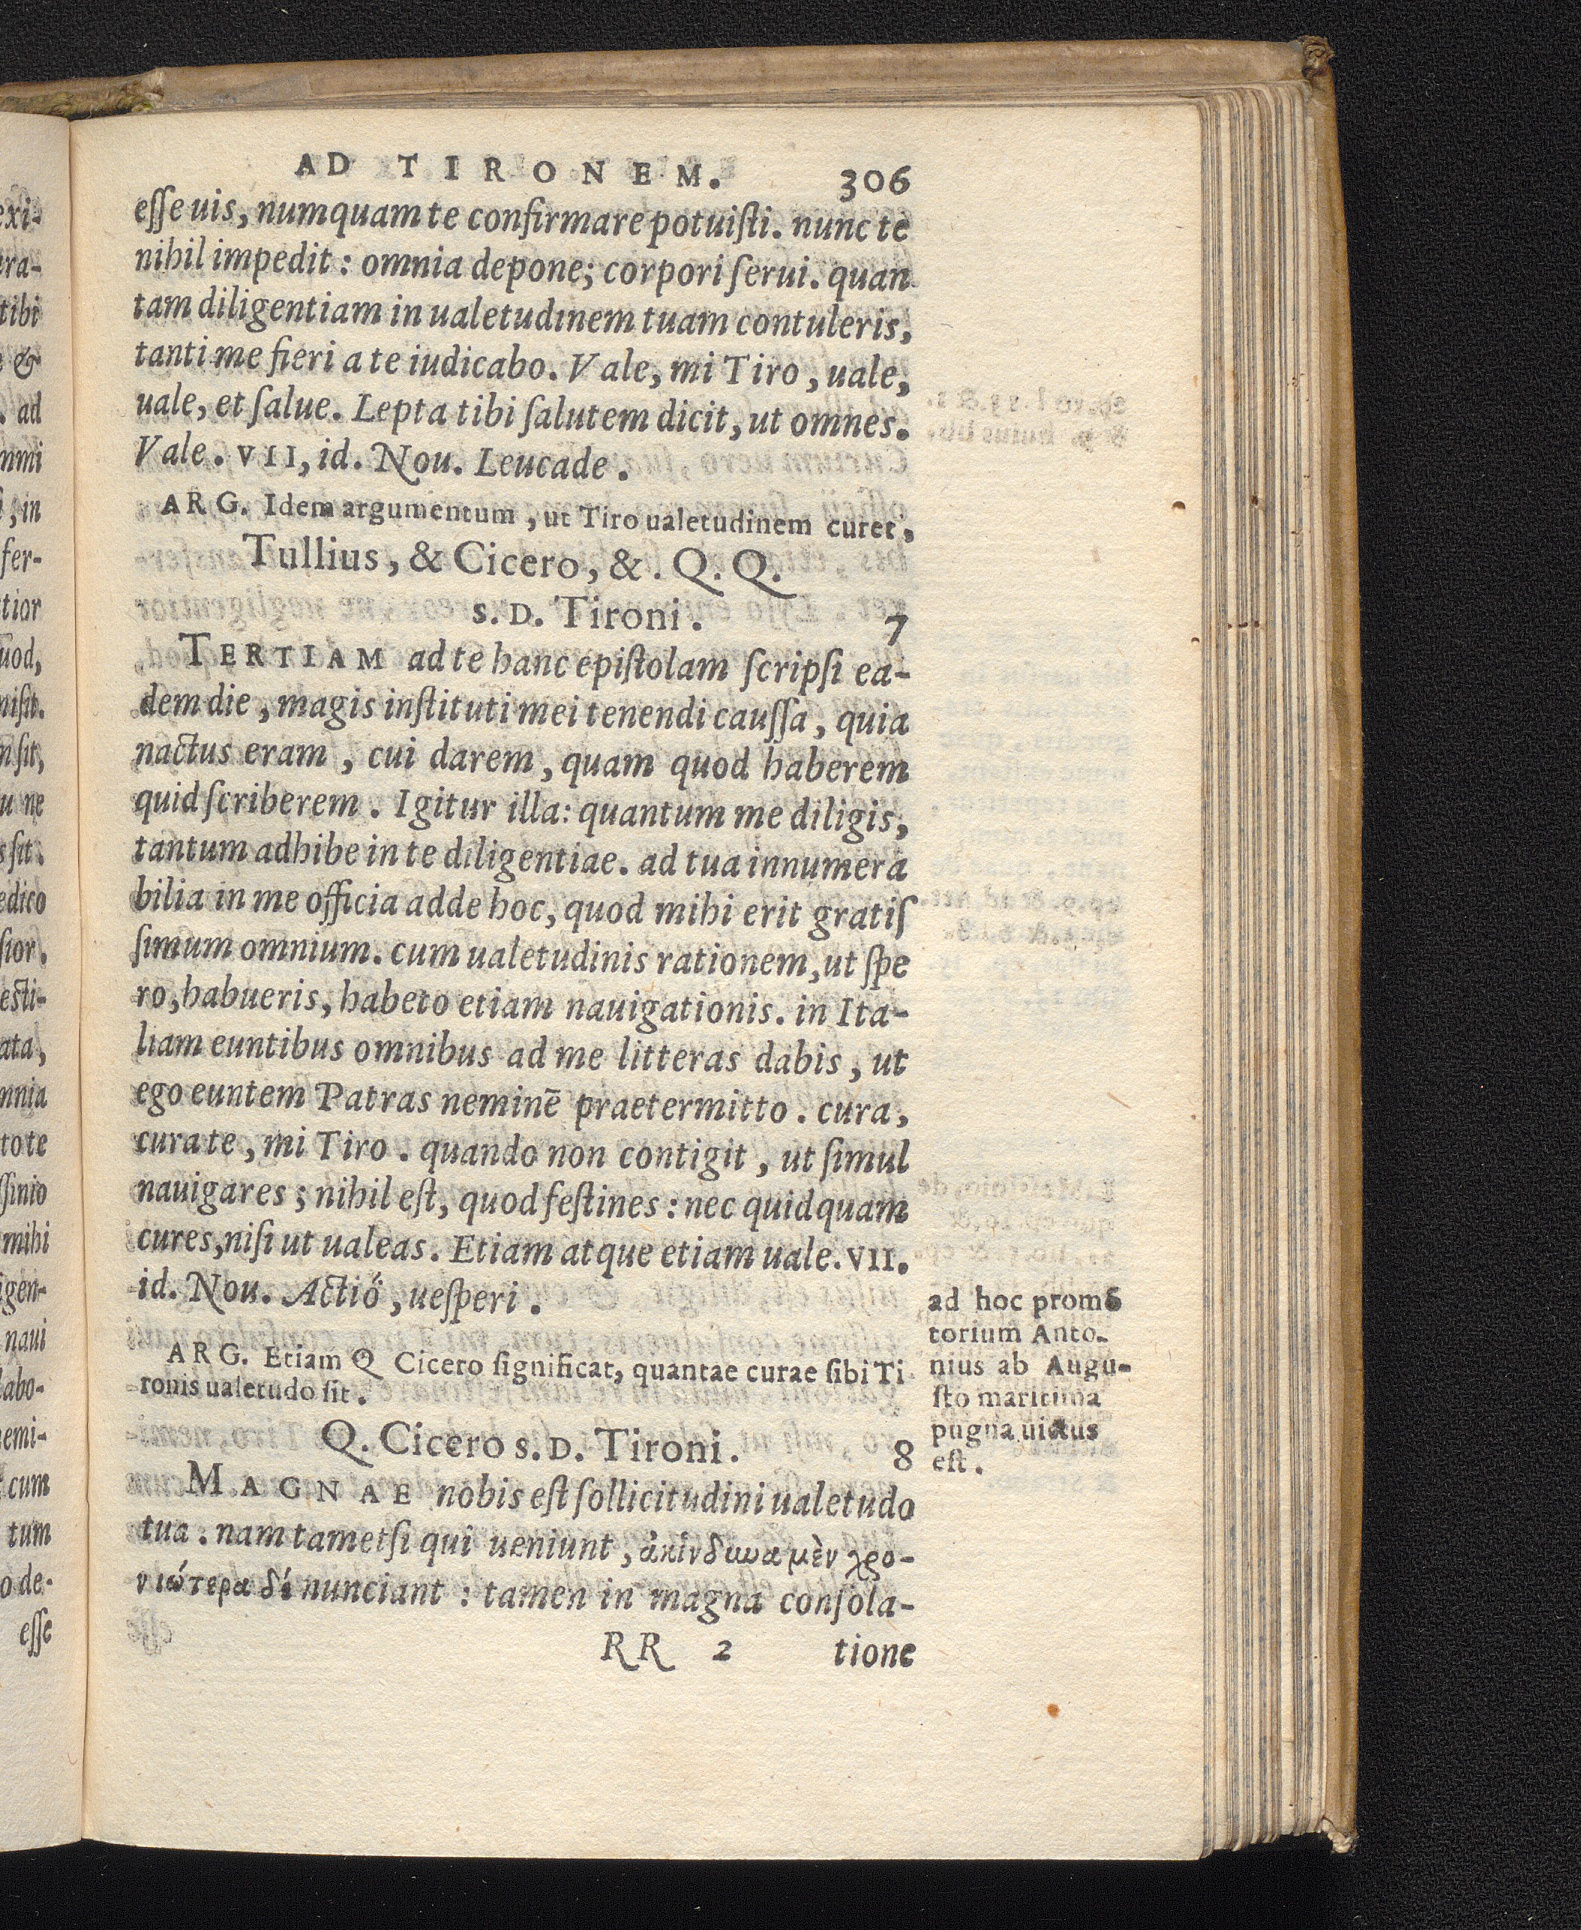 AD TIRONEM. 306
esse uis, numquam te confirmare potuisti. nunc te
nihil impedit: omnia depone; corpori serui. quan
tam diligentiam in ualetudinem tuam contuleris,
tanti me fieri a te iudicabo. Vale, mi Tiro, uale,
uale, et salue. Lepta tibi salutem dicit, ut omnes.
Vale. VII, id. Nou. Leucade.
ARG. Idem argumentum, ut Tiro ualetudinem curet,
Tullius, & Cicero, &. Q. Q.
S. D. Tironi. 7
TERTIAM ad te hanc epistolam scripsi ea-
dem die, magis instituti mei tenendi caussa, quia
nactus eram, cui darem, quam quod haberem
quid scriberem. Igitur illa: quantum me diligis,
tantum adhibe in te diligentiae. ad tua innumera
bilia in me officia adde hoc, quod mihi erit gratis
simum omnium. cum ualetudinis rationem, ut spe
ro, habueris, habeto etiam nauigationis. in Ita-
liam euntibus omnibus ad me litteras dabis, ut
ego euntem Patras neminē praetermitto. cura,
cura te, mi Tiro. quando non contigit, ut simul
nauigares; nihil est, quod festines: nec quidquam
cures, nisi ut ualeas. Etiam atque etiam uale. VII.
id. Nou. Actiö, uesperi.
ARG. Etiam Q Cicero significat, quantae curae sibi Ti
ronis ualetudo sit.
Q. Cicero S. D. Tironi. 8
MAGNAE nobis est sollicitudini ualetudo
tua. nam tametsi qui ueniunt, ἀκίνδυνα μὲν χρο-
νιώτερα δέ nunciant: tamen in magna consola-
RR 2 tione
ad hoc promō
torium Anto-
nius ab Augu-
sto maritima
pugna uictus
est.
exi-
tibi
&
. ad
, in
fer-
tior
uod,
misit.
u ne
edico
sior.
ata,
mnia
tote
mihi
naui
cum
tum
o de-
esse